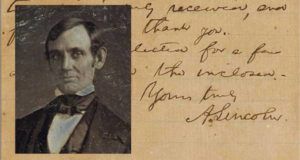 received, and
thank you.
for a few
the inclosed.
Yours truly
A. Lincoln.